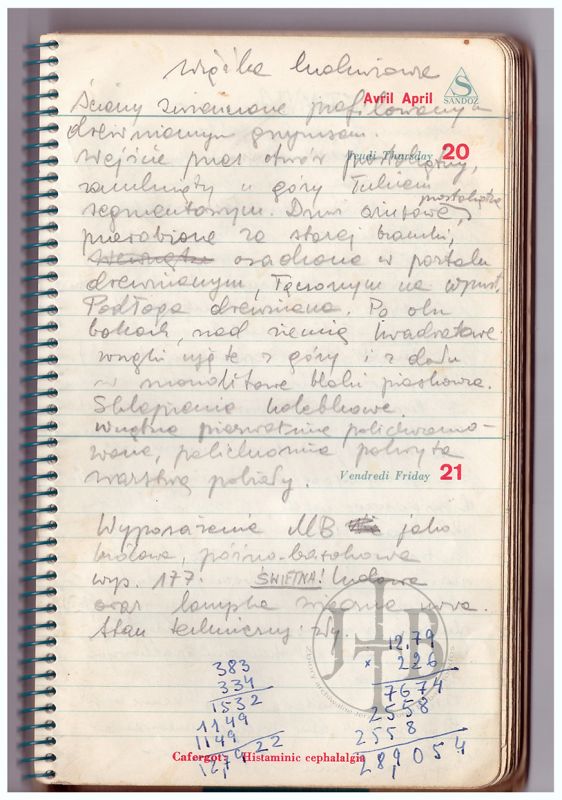 Avril April
SANDOZ
Ściany zwieńczone profilowanym
drewnianym gzymsem.
Jeudi Thursday 20
Wejście przez otwór prostokątny,
zamknięty u góry łukiem
prostokątne
segmentowym. Drzwi
przerobione ze starej bramki,
osadzone w portalu
drewnianym, łączonym na wpust.
Podłoga drewniana. Po obu
bokach, nad ziemią kwadratowe
wnęki ujęte z góry i z dołu
w monolitowe bloki piaskowca.
Sklepienie kolebkowe.
wnętrze pierwotnie polichromo-
wane, polichromia pokryta
warstwą pobiały.
Vendredi Friday 21
Wyposażenie MB jako
królowa, późno-barokowa
wys. 177. ŚWIETNA! ludowa
oraz lampka wieczna nowa.
Stan techniczny zły.
JHTB
383
334
1532
1149
1149
127922
12,79
× 226
7674
2558
2558
289,054
Cafergot: Histaminic cephalalgia